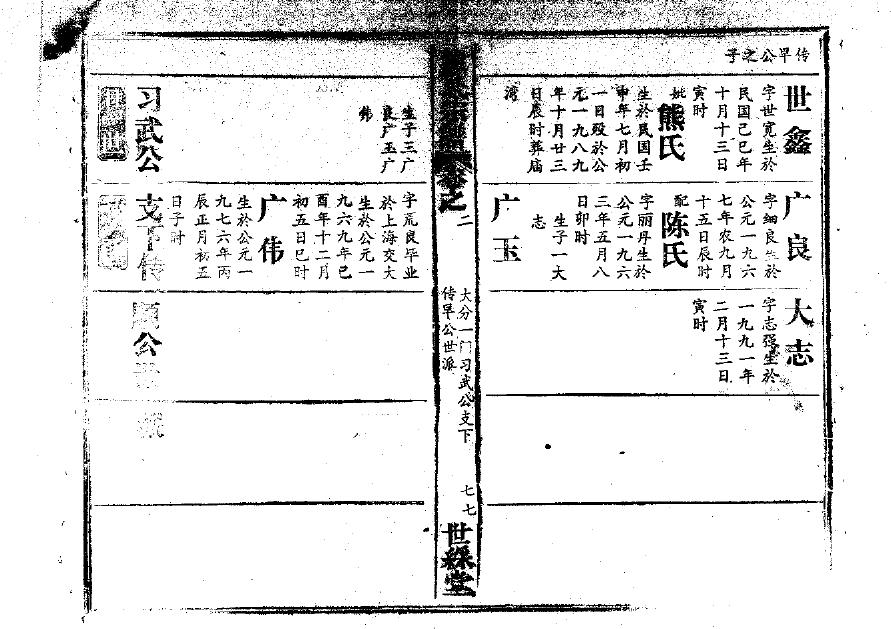 传早公之子
世鑫
字世宽生於
民国己巳年
十月十三日
寅时
妣熊氏
生於民国壬
申年七月初
一日殁於公
元一九八九
年十月廿三
日辰时葬庙
湾
生子三广
良广玉广
伟
广良
字细良生於
公元一九六
七年农九月
十五日辰时
配陈氏
字丽丹生於
公元一九六
三年五月八
日卯时
生子一大
志
广玉
字荒良毕业
於上海交大
生於公元一
九六九年己
酉年十二月
初五日巳时
广伟
生於公元一
九七六年丙
辰正月初五
日子时
大志
字志强生於
一九九一年
二月十三日
寅时
卷之二
大分一门习武公支下
传早公世派
七七
世綵堂
习武公
支下传
公